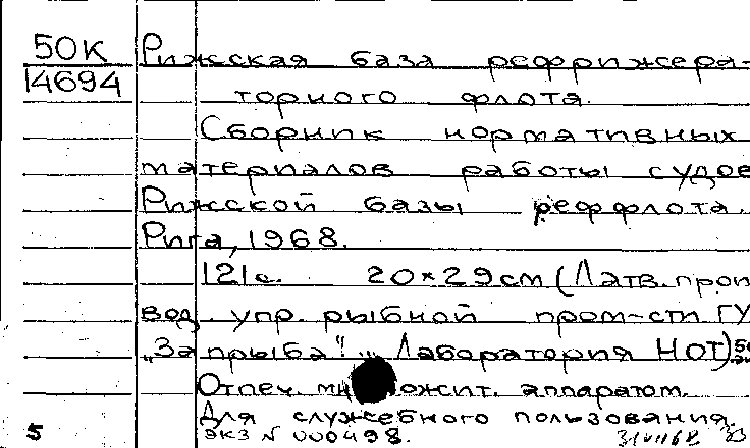 50К
14694
Рижская база рефрижера-
торного флота.
Сборник нормативных
материалов работы судов
Рижской базы рефлота.
Рига, 1968.
121с. 20×29см (Латв. прои
вод. упр. рыбной пром-сти ГУ
„Запрыба". Лаборатория НОТ)
Отпеч. множит. аппаратом.
Для служебного пользования
экз N 000498.
5